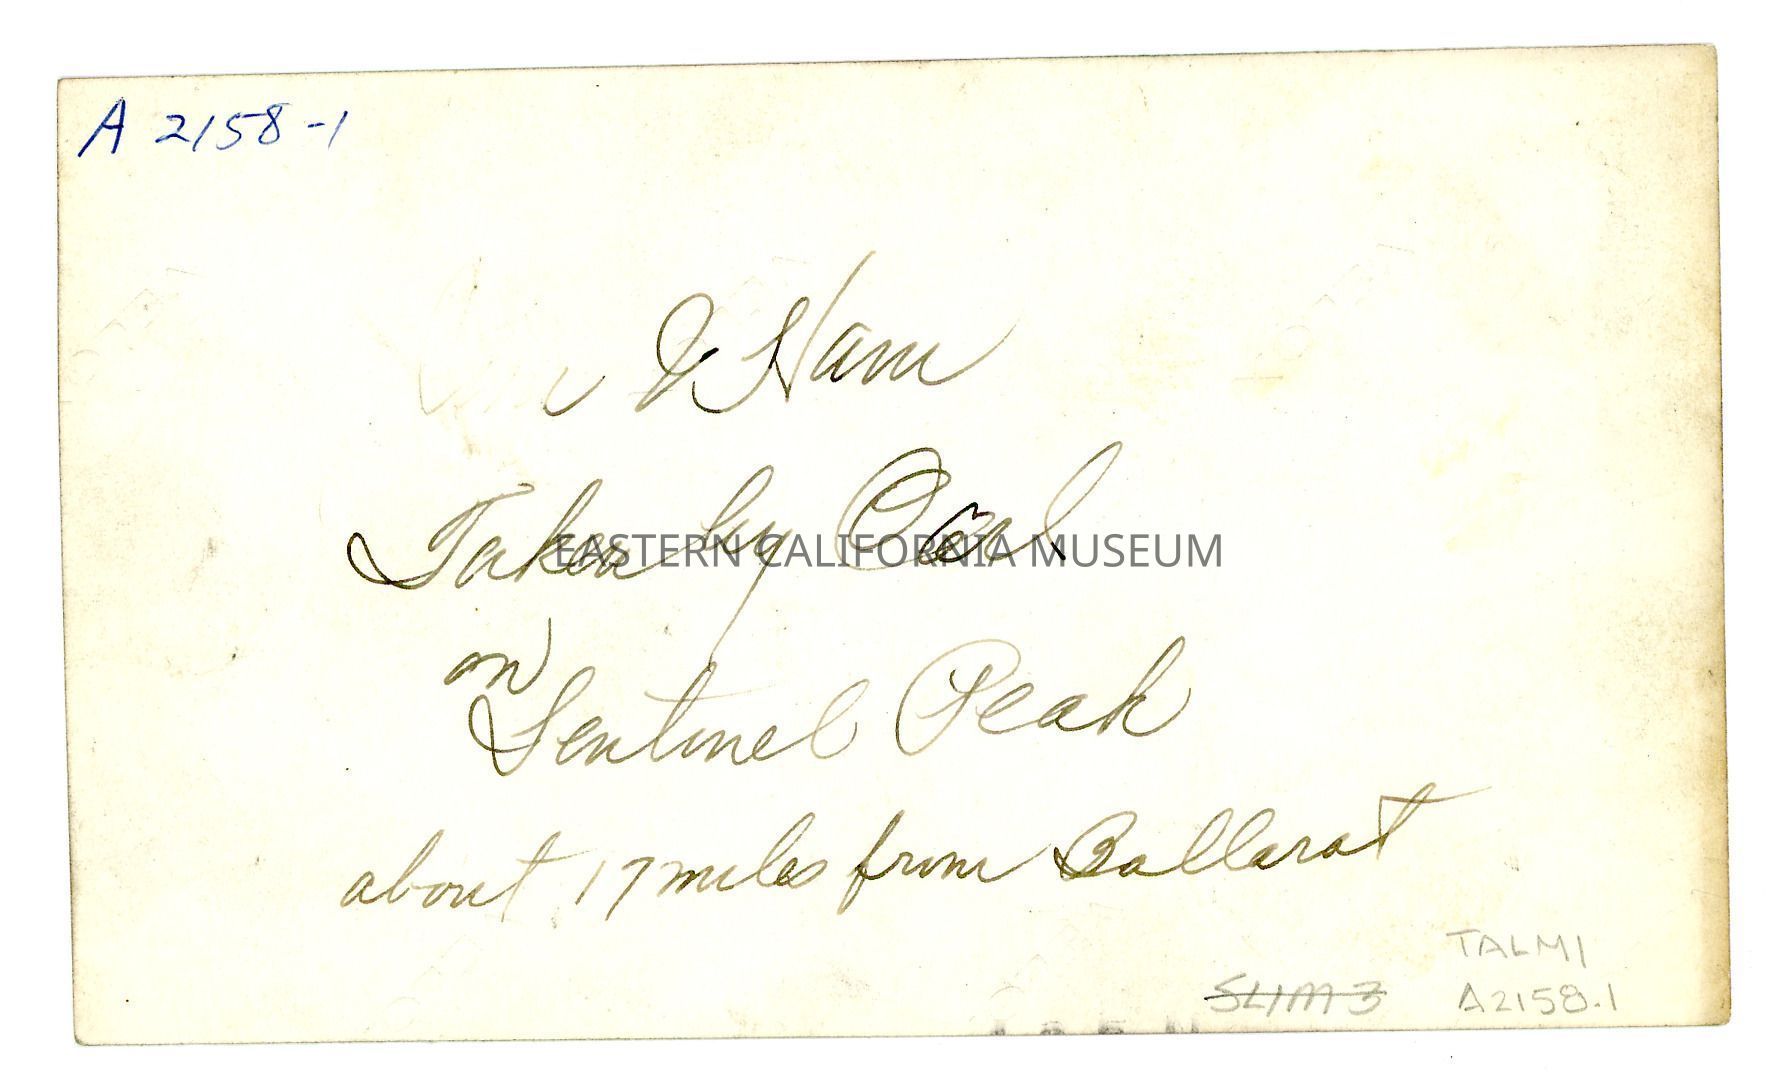 A 2158-1
& Ham
Taken by Carl
EASTERN CALIFORNIA MUSEUM
on
Sentinel Peak
about 17 miles from Ballarat
TALMI
SLIM 3
A2158.1